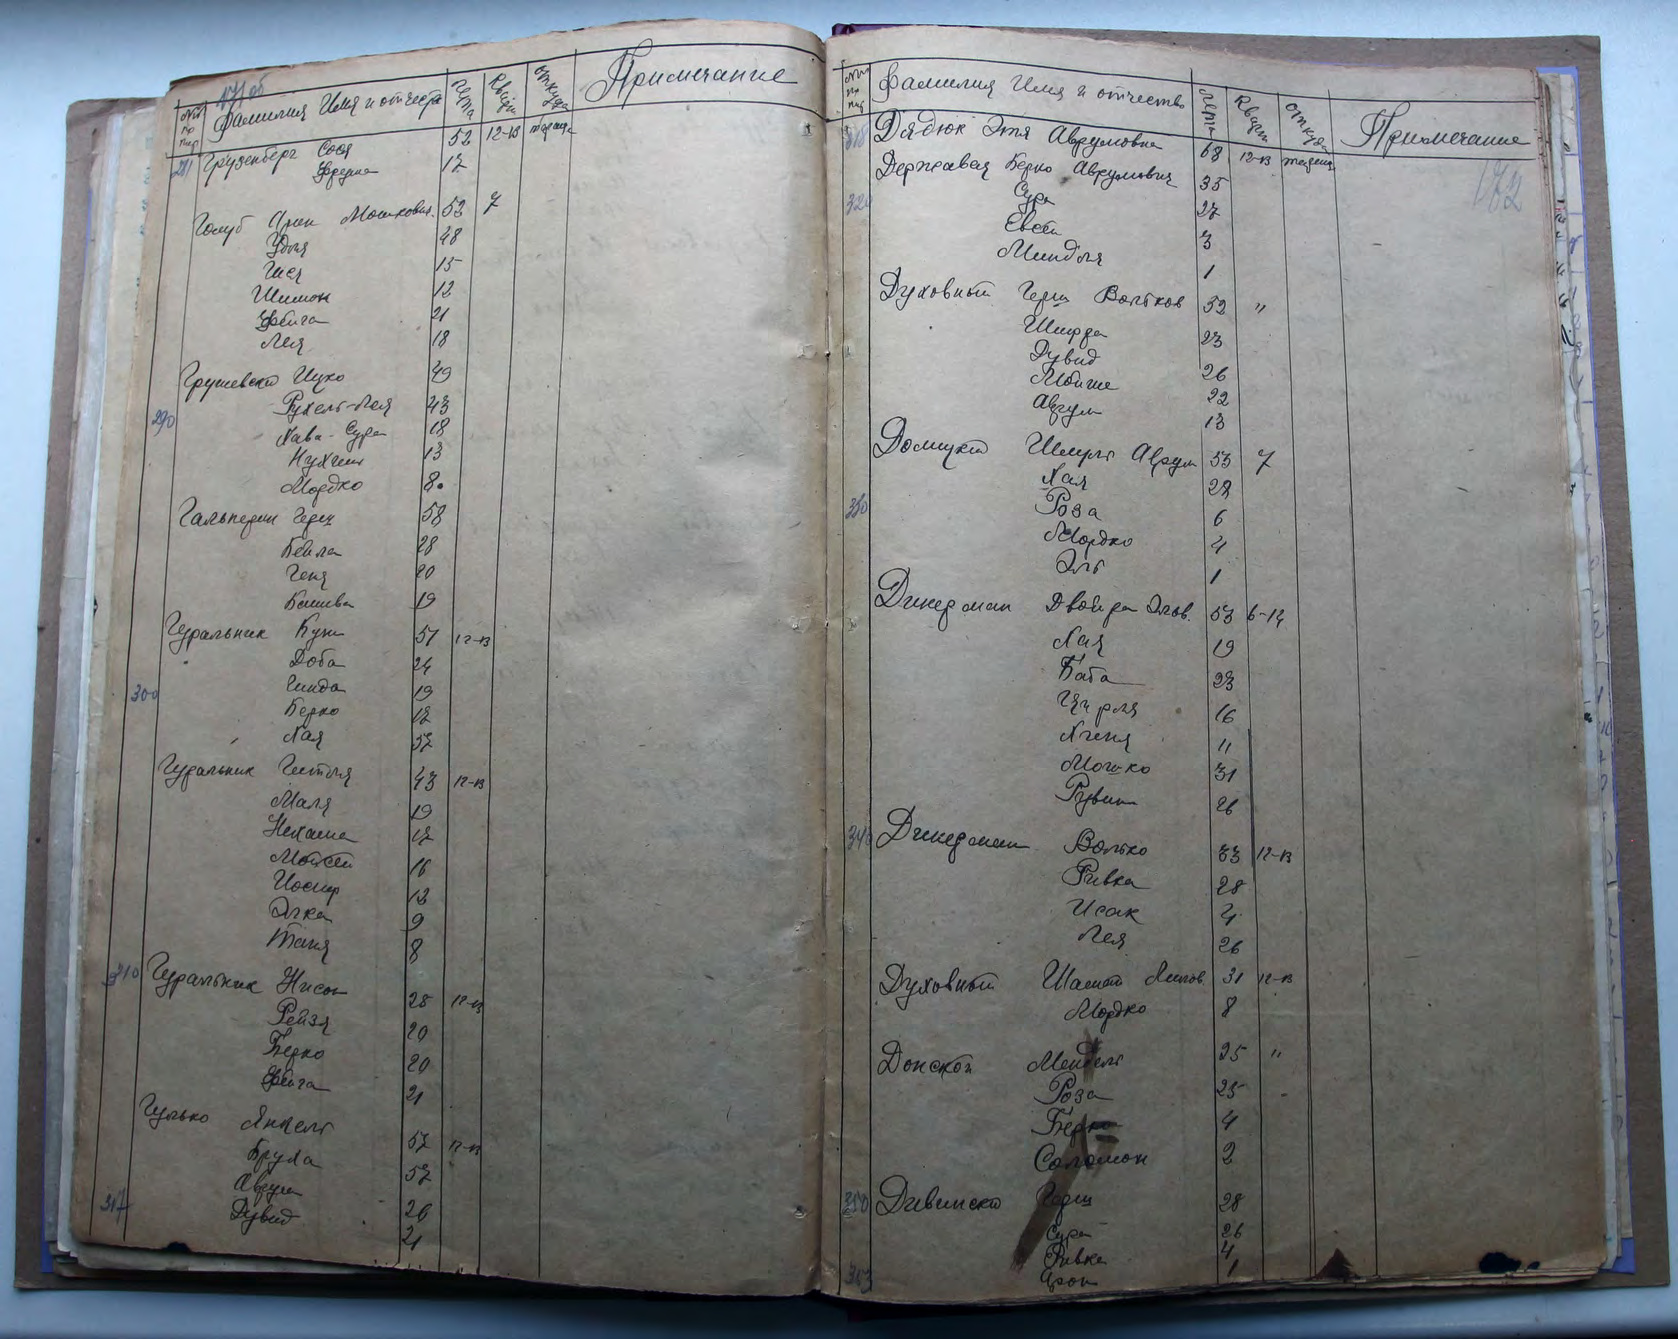 171 об
№№ по пор Фамилия Имя и отчество Лета Кварт откуда Примечание
281 Грузенберг Сося 52 12-13 тараща
Фрейма 17
Голуб Арон Мошкович 52 7
Удля 48
Шея 15
Шимон 12
Фейга 21
Лея 18
Грушевской Ицко 49
290 Рухель-Лея 43
Хава-Сура 18
Нухим 13
Мордко 8
Гальперин Герш 58
Бейла 28
Геня 20
Башива 19
Гуральник Куна 51 12-13
Доба 24
300 Гинда 19
Берко 17
Хая 57
Гуральник Гитля 43 12-13
Маля 19
Нехама 17
Мойсей 16
Иосиф 12
Элка 9
Таня 8
310 Гуральник Нисон 28 12-13
Рейзя 20
Берко 20
Фейга 21
Гулько Янкель 57 12-13
Бруха 57
Аврум 26
317 Дувид 21
172
№№ по пор Фамилия Имя и отчество Лета Кварт откуда Примечание
318 Дядюк Этя Аврумовна 68 12-13
Державая Берко Аврумович 35
320 Сура 27
Евсей 3
Миндля 1
Духовный Герш Вольков 32 "
Шифра 23
Дувид 26
Мойше 22
Аврум 13
Домицкой Шмуль Аврум 53 7
Хая 28
330 Роза 6
Мордко 4
Эль 1
Динерман Двойра Элов. 53 6-14
Хая 19
Баба 23
Цирля 16
Хиня 11
Мошко 31
Рувин 26
340 Динерман Волько 33 12-13
Ривка 28
Исак 4
Лея 26
Духовный Шамай Лейбов 31 12-13
Мордко 8
Донской Мендель 25 "
Роза 25
Берко 4
Соломон 2
350 Дивинской Герш 28
Сура 26
Ривка 4
353 Арон 1